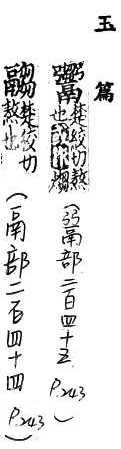 玉篇
楚絞切熬也或作煼
(䰜部二百四十五 P.243)
楚絞切熬也
(鬲部二百四十四 P.243)